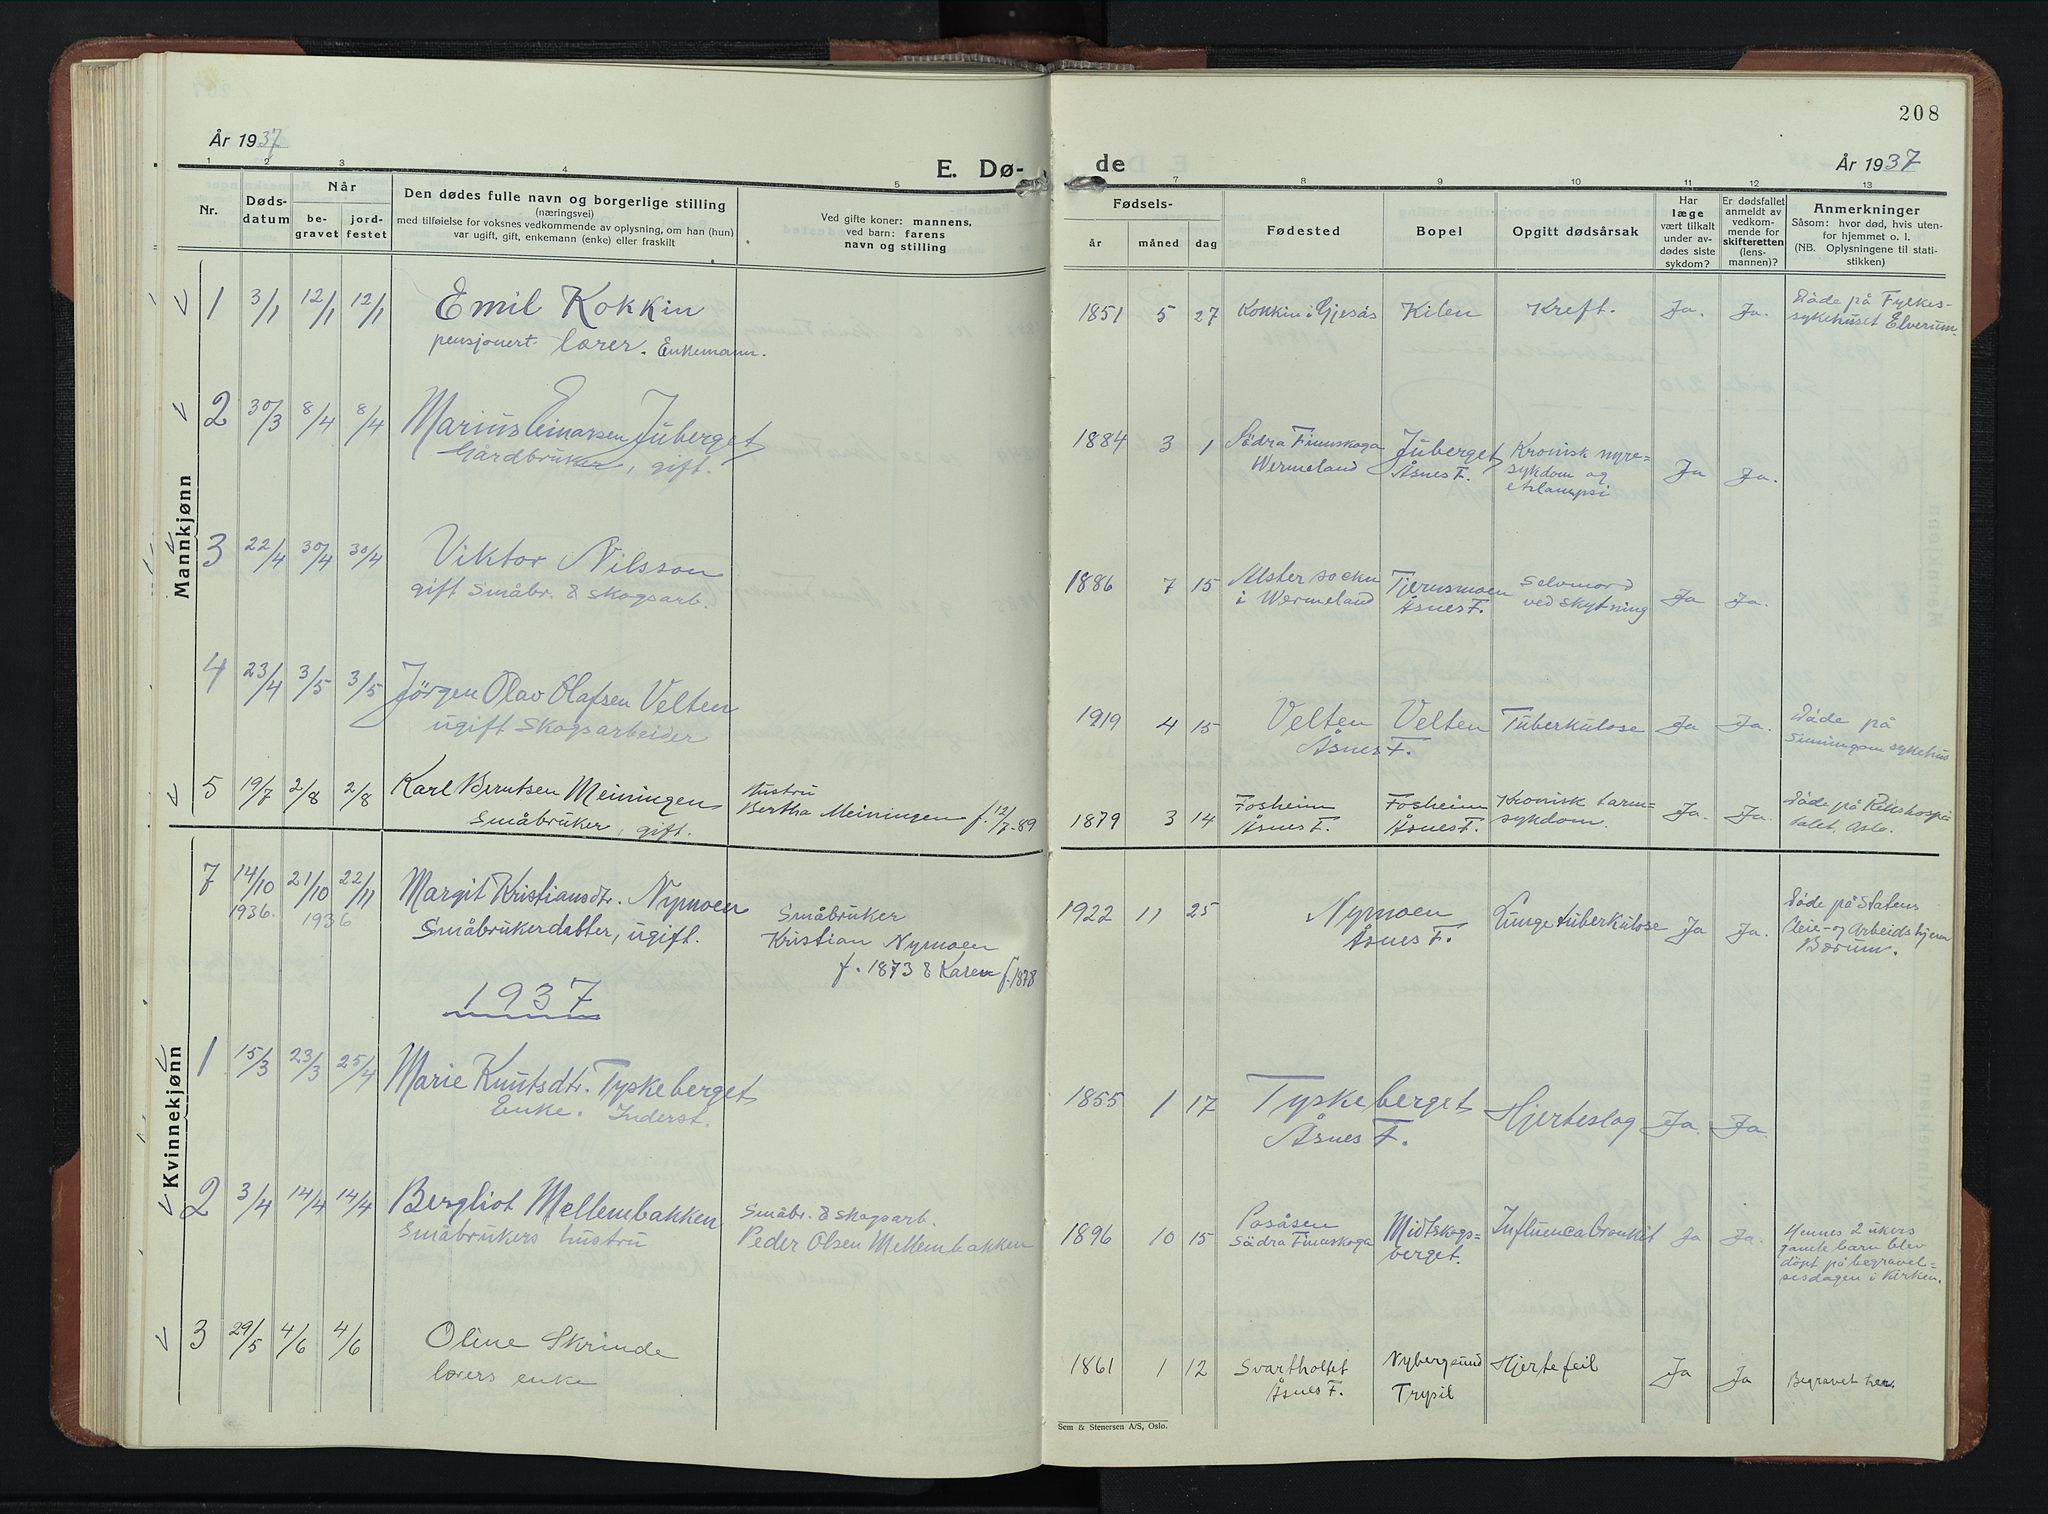 208
År 1937
E. Dø-
de
År 1937
1 2 3 4 5 7 8 9 10 11 12 13
Nr.
Døds-
datum
Når
be-
gravet
jord-
festet
Den dødes fulle navn og borgerlige stilling
(næringsvei)
med tilføielse for voksnes vedkommende av oplysning, om han (hun)
var ugift, gift, enkemann (enke) eller fraskilt
Ved gifte koner: mannens,
ved barn: farens
navn og stilling
Fødsels-
år måned dag
Fødested
Bopel
Opgitt dødsårsak
Har
læge
vært tilkalt
under av-
dødes siste
sykdom?
Er dødsfallet
anmeldt av
vedkom-
mende for
skifteretten
(lens-
mannen)?
Anmerkninger
Såsom: hvor død, hvis uten-
for hjemmet o. l.
(NB. Oplysningene til stati-
stikken)
Mannkjønn
1 3/1 12/1 12/1 Emil Kokkin 1851 5 27 Kokkin i Gjesås Kilen Kreft. Ja. Ja. Døde på Fylkes-
pensjonert lærer. Enkemann. sykehuset Elverum.
2 30/3 8/4 8/4 Marius Einarsen Juberget 1884 3 1 Södra Finnskoga Juberget Kronisk nyre=
Gårdbruker, gift. Wermeland Åsnes F. sykdom og Ja Ja.
3 22/4 30/4 30/4 Viktor Nilsson 1886 7 15 Alster socken Tjernsmoen Selvmord
gift Småbr. & skogsarb. i Wermeland Åsnes F. ved skytning Ja Ja.
4 23/4 3/5 3/5 Jörgen Olav Olafsen Velten 1919 4 15 Velten Velten Tuberkulose Ja Ja. Døde på
ugift Skogsarbeider Åsnes F. sykehus
5 19/7 2/8 2/8 Karl Berntsen Meiningen hustru
Småbruker, gift. Bertha Meiningen f. 12/7-89
1879 3 14 Fosheim Fosheim Kronisk tarm= Ja. Ja. Døde på Rikshospi
Åsnes F. Åsnes F. sykdom. talet, Oslo.
Kvinnekjønn
7 14/10 21/10 22/11 Margit Kristiansdtr. Nymoen Småbruker
1936. 1936 Småbrukerdatter, ugift. Kristian Nymoen
f. 1873 & Karen f. 1878
1922 11 25 Nymoen Lungetuberkulose Ja Ja. Døde på Statens
Åsnes F. Pleie- og Arbeidshjem
Bærum.
1937
1 15/3 23/3 25/4 Marie Knutsdtr. Tyskeberget 1855 1 17 Tyskeberget Hjerteslag Ja. Ja.
Enke. Inderst. Åsnes F.
2 3/4 14/4 14/4 Bergliot Mellembakken Småbr. & skogsarb.
Småbrukers hustru Peder Olsen Mellembakken
1896 10 15 Posåsen Midtskogs- Influenca Bronkit Ja Ja. Hennes 2 ukers
Södra Finnskoga berget. gamle barn blev
döpt på begravel=
sesdagen i Kirken.
3 29/5 4/6 4/6 Oline Skrinde 1861 1 12 Svartholtet Nybergsund Hjertefeil Ja Ja Begravet her.
lærers enke Åsnes F. Trysil
Sem & Stenersen A/S, Oslo.